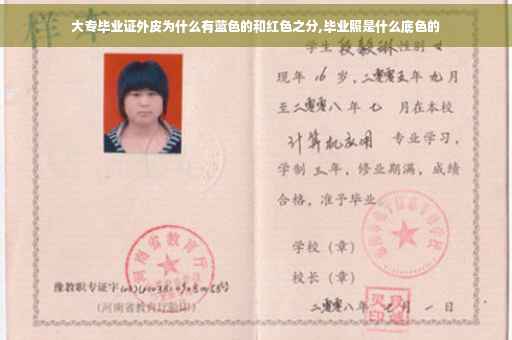 大专毕业证外皮为什么有蓝色的和红色之分,毕业照是什么底色的
样本
学生 段毅琳 性别 女
现年 16 岁,二零零五年 九 月
至二零零八年 七 月在本校
计算机应用 专业学习,
学制 三 年,修业期满,成绩
合格,准予毕业
学校(章)
校长(章)
二零零八年 七 月 一 日
河南省教育厅
豫教职专证字
(河南省教育厅验印)